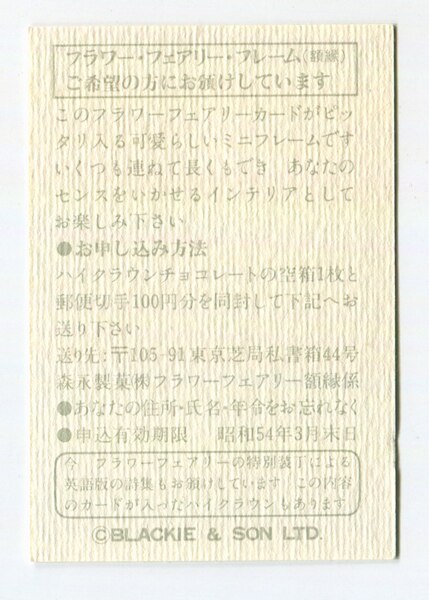 フラワー・フェアリー・フレーム(額縁)
ご希望の方にお頒けしています
このフラワーフェアリーカードがピッ
タリ入る可愛らしいミニフレームです
いくつも連ねて長くもでき あなたの
センスをいかせるインテリアとして
お楽しみ下さい
●お申し込み方法
ハイクラウンチョコレートの空箱1枚と
郵便切手100円分を同封して下記へお
送り下さい
送り先:〒105-91東京芝局私書箱44号
森永製菓㈱フラワーフェアリー額縁係
●あなたの住所・氏名・年令をお忘れなく
●申込有効期限 昭和54年3月末日
今 フラワーフェアリーの特別装丁による
英語版の詩集もお頒けしています この内容
のカードが入ったハイクラウンもあります
©BLACKIE & SON LTD.